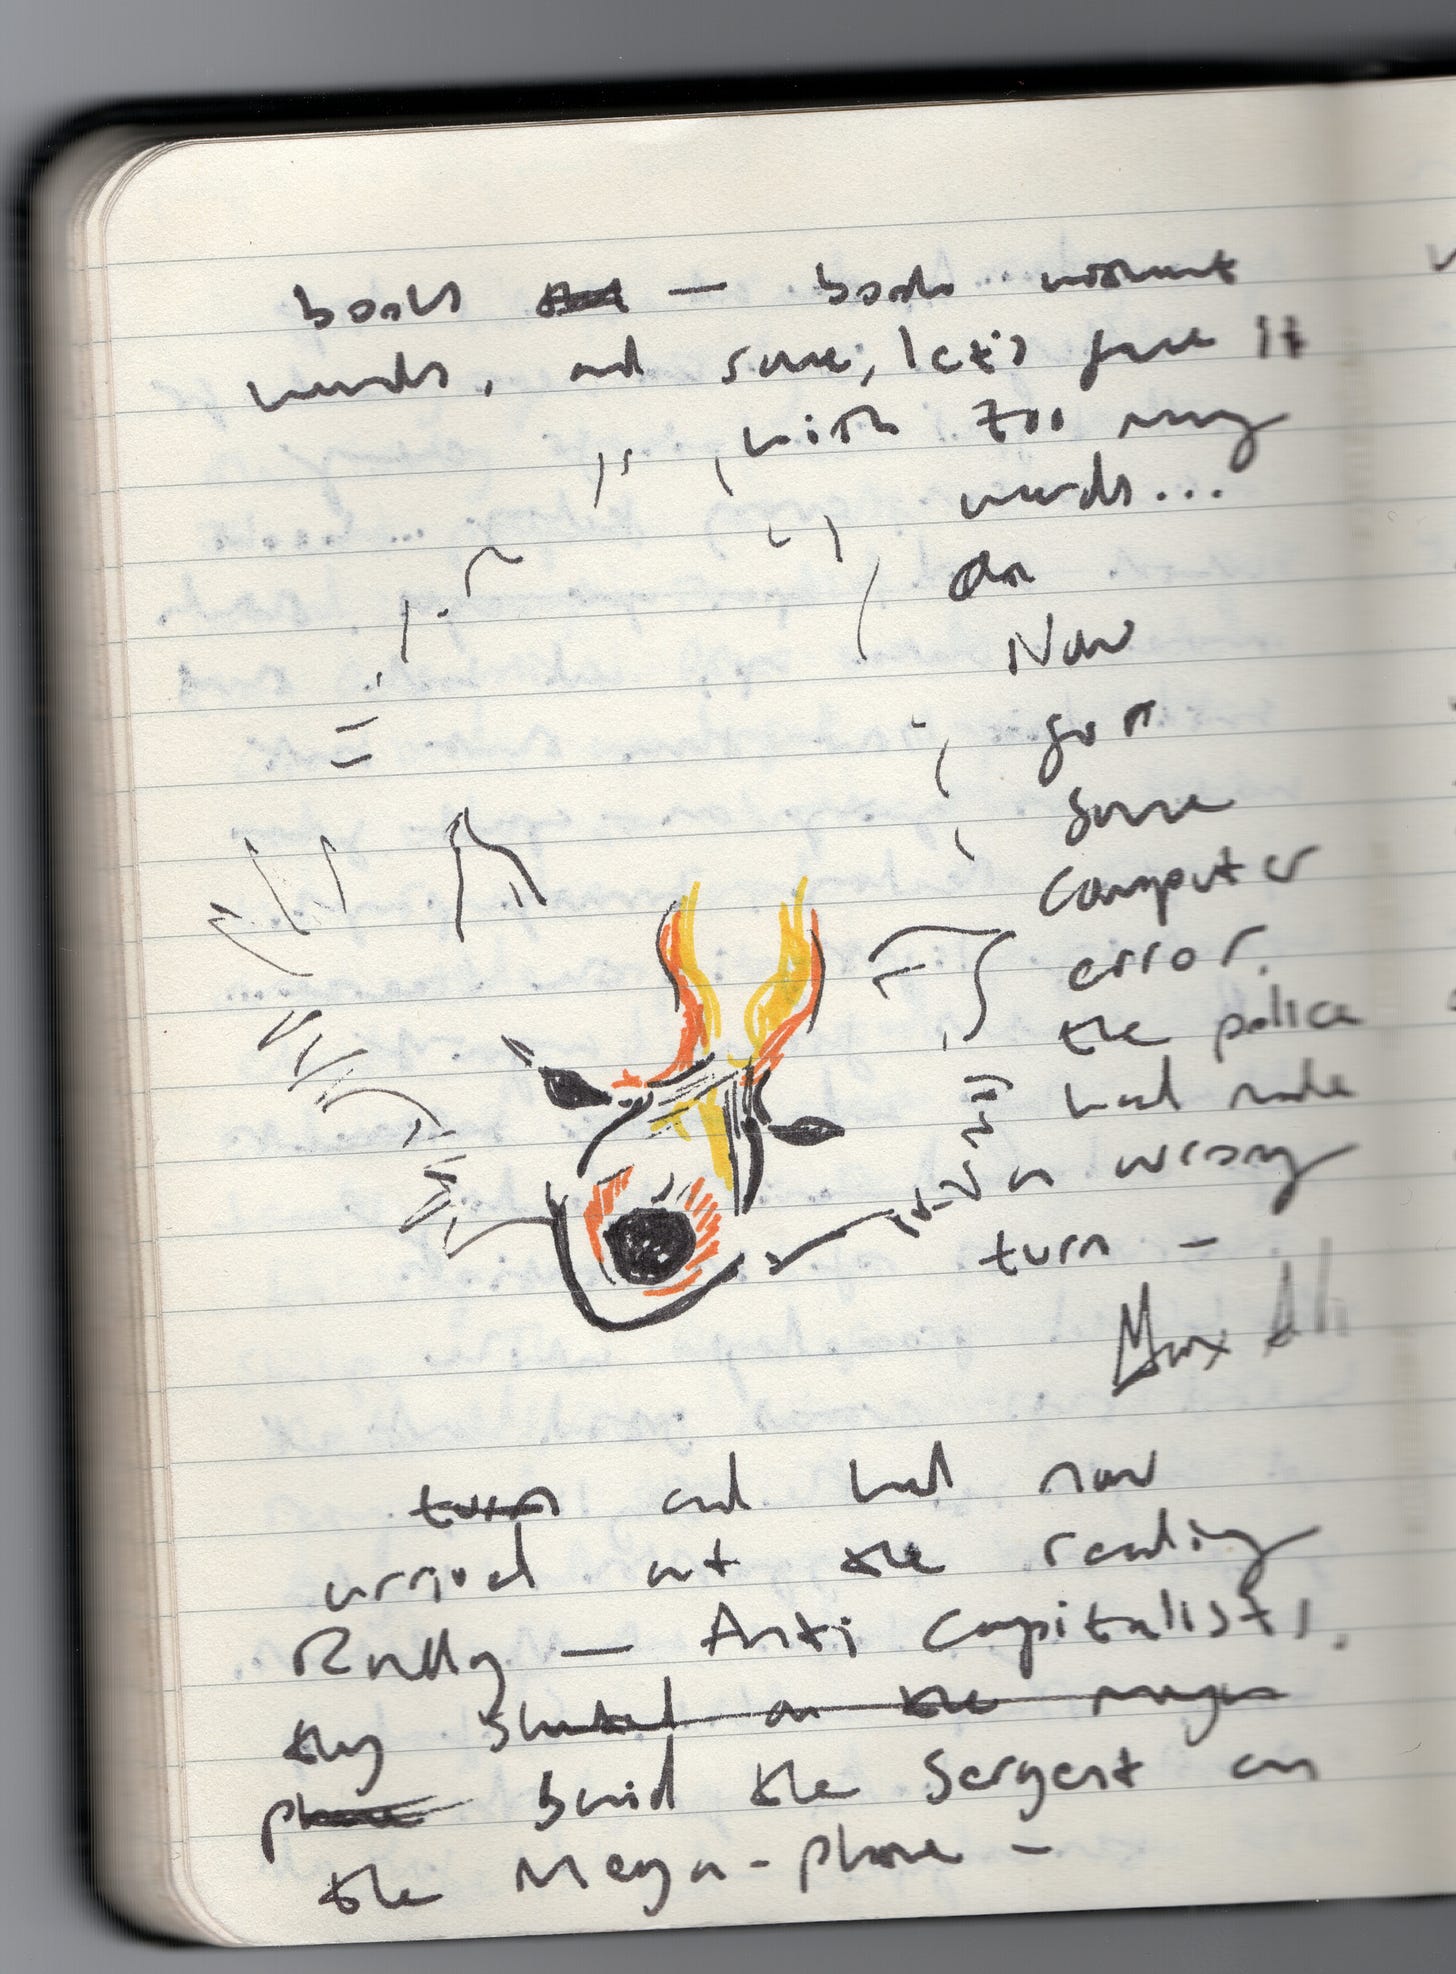 books — books without
words, and some, let's face it
, with too many
words...
on
Now
some
computer
error.
the police
had made
a wrong
turn —
turn and had now
arrived at the reading
Rally — Anti Capitalists.
they shouted on the mega
phone said the Sergent on
the Mega-phone —